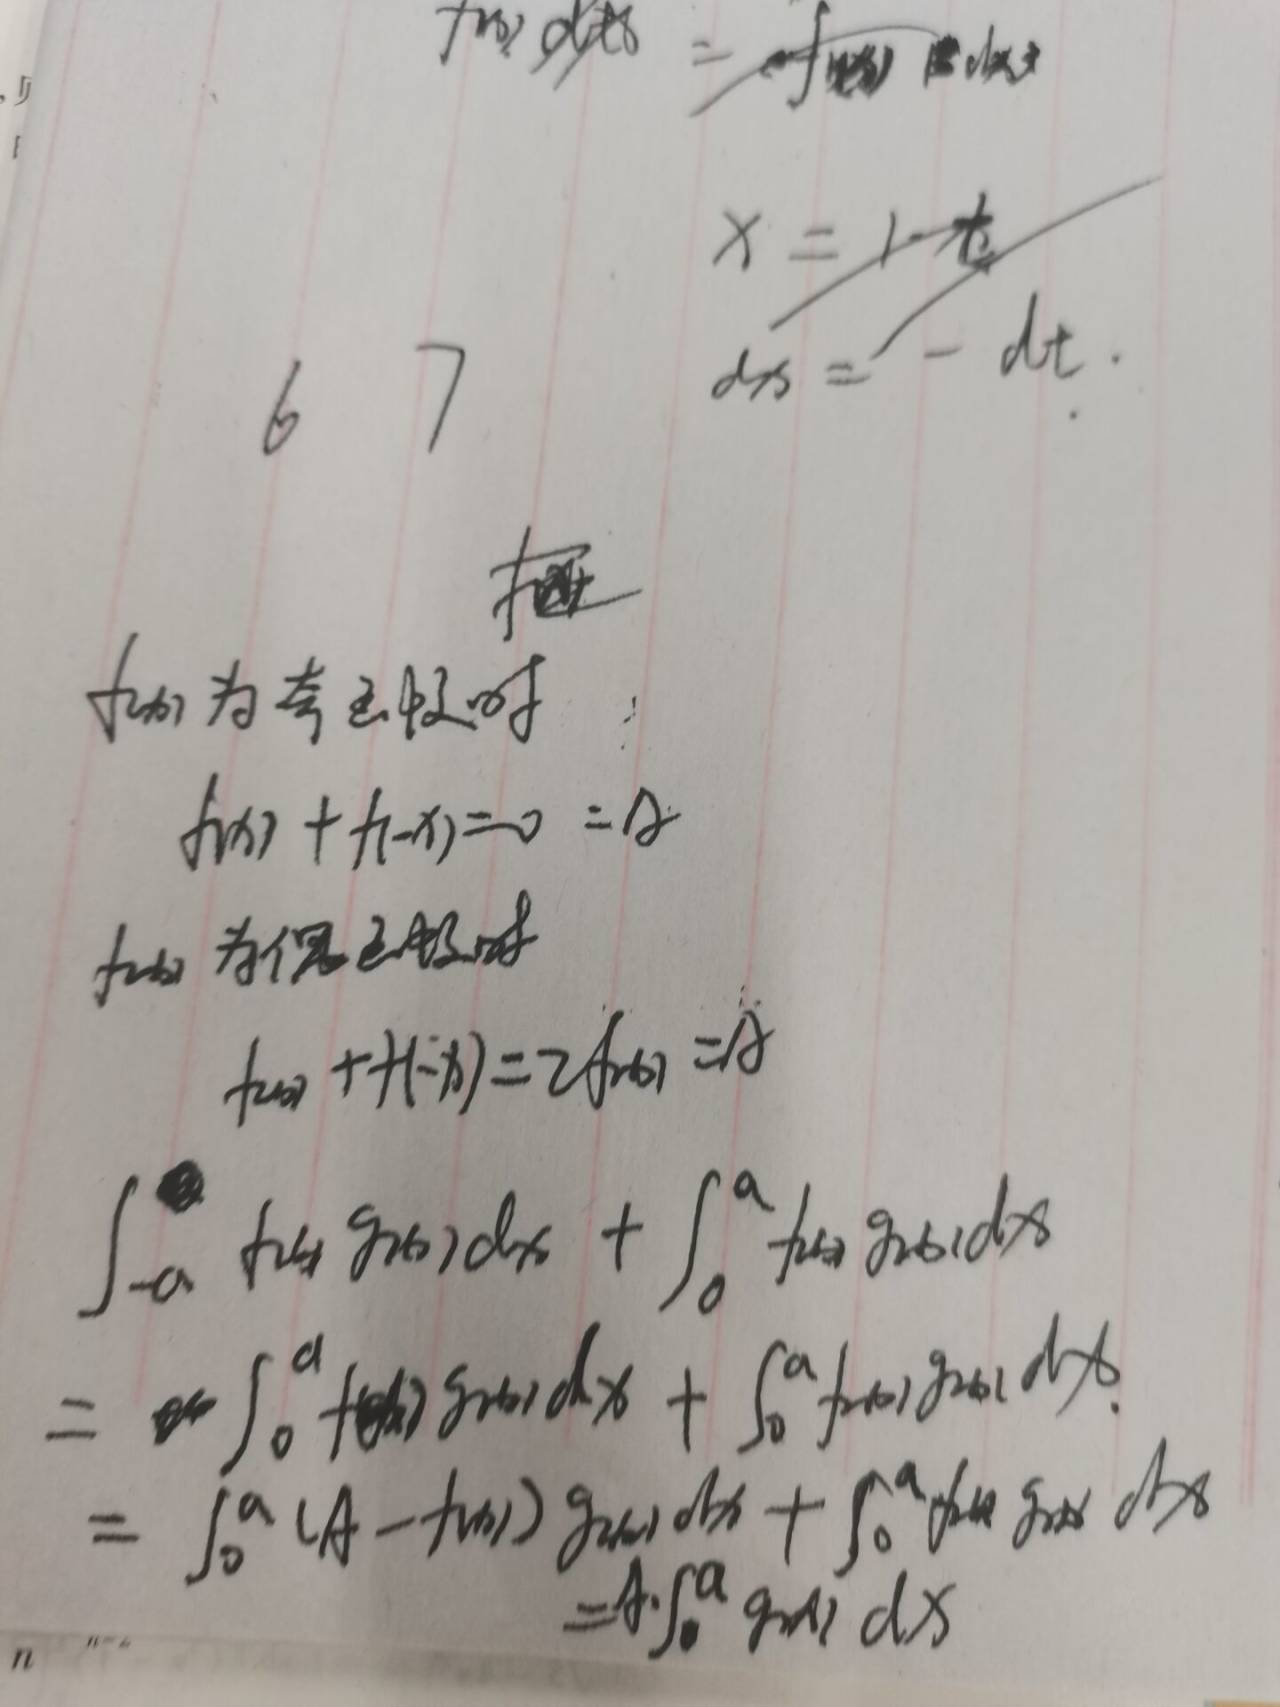 x = 1 - t
dx = - dt .
6 7
f(x) 为奇函数时
f(x) + f(-x) = 0 = A
f(x) 为偶函数时
f(x) + f(-x) = 2f(x) = A
∫_{-a} f(x) g(x) dx + ∫_0^a f(x) g(x) dx
= ∫_0^a f(-x) g(x) dx + ∫_0^a f(x) g(x) dx.
= ∫_0^a (A - f(x)) g(x) dx + ∫_0^a f(x) g(x) dx
= A·∫_0^a g(x) dx
n